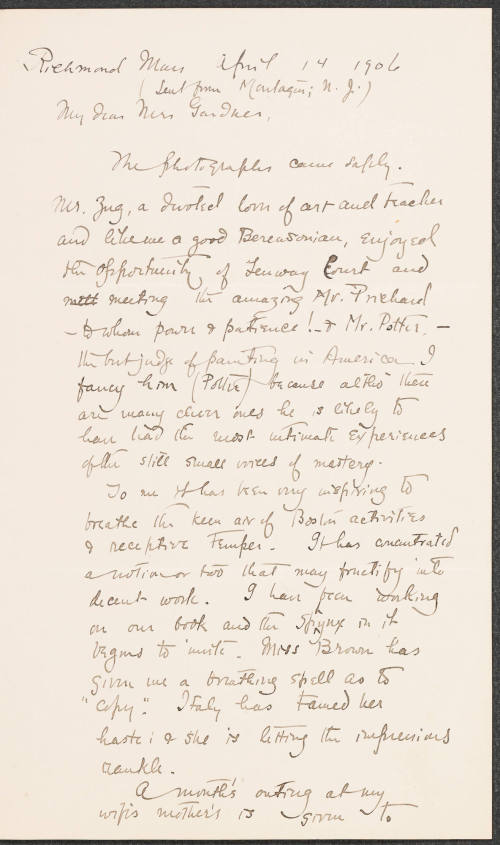 Richmond Mass April 14 1906
(Sent from Montague, N. J.)
My dear Mrs Gardner,
The photographs came safely.
Mr. Zug, a devoted lover of art and teacher
and like me a good Berensonian, enjoyed
the opportunity of Fenway Court and
meeting the amazing Mr. Prichard
— to whom power & patience! — & Mr. Potter. —
the best judge of painting in America I
fancy him (Potter) because altho' there
are many clever ones he is likely to
have had the most intimate experiences
of the still small voices of mastery.
To me it has been very inspiring to
breathe the keen air of Boston activities
& receptive temper. It has concentrated
a notion or two that may fructify into
decent work. I have been working
on our book and the Sphynx in it
begins to unite. Miss Brown has
given me a breathing spell as to
"copy". Italy has tamed her
haste; & she is letting the impressions
rankle.
A month's outing at my
wife's mother's is given to